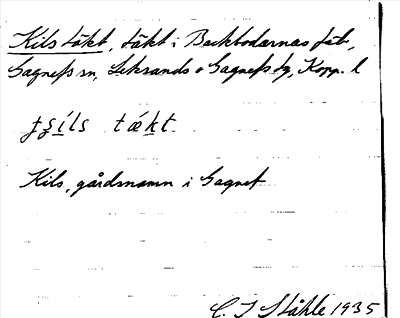 Kils täkt, täkt i Backbodarnas fäb.,
Gagnefs sn, Leksands o Gagnefs tg, Kopp. l
täkt
Kils, gårdsnamn i Gagnef
C. I Ståhle 1935